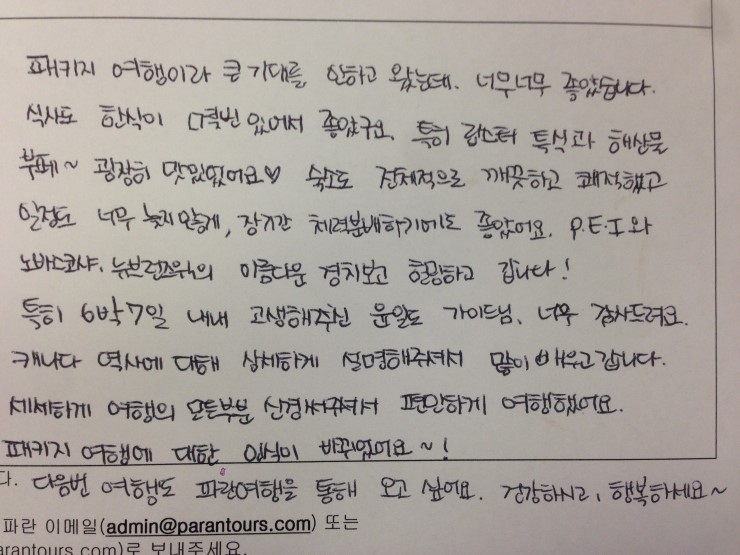 패키지 여행이라 큰 기대를 안하고 왔는데. 너무너무 좋았습니다.
식사도 한식이 여럿번 있어서 좋았구요. 특히 랍스터 특식과 해산물
부페~ 굉장히 맛있었어요♡ 숙소도 전체적으로 깨끗하고 쾌적했고
일정도 너무 늦지 않게, 장시간 체력분배하기에도 좋았어요. P.E.I 와
노바스코샤. 뉴브런즈윅의 아름다운 경치보고 힐링하고 갑니다!
특히 6박7일 내내 고생해주신 윤일도 가이드님. 너무 감사드려요.
캐나다 역사에 대해 상세하게 설명해주셔서 많이 배우고 갑니다.
세세하게 여행의 모든부분 신경써주셔서 편안하게 여행했어요.
패키지 여행에 대한 인식이 바뀌었어요~!
다. 다음번 여행도 파란여행을 통해 오고 싶어요. 건강하시고, 행복하세요~
파란 이메일(admin@parantours.com) 또는
arantours.com)로 보내주세요.